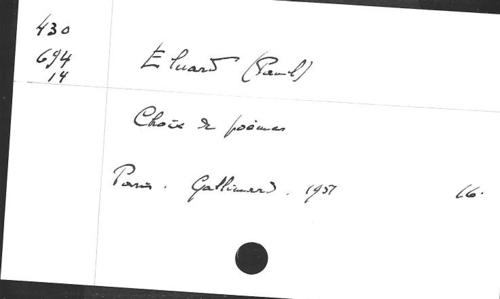 430
694
14
Eluard (Paul)
Choix de poèmes
Paris. Gallimard. 1951
16.